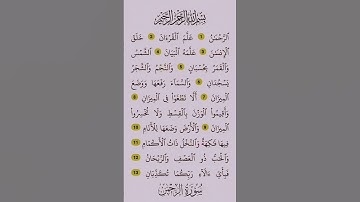 بسم الله الرحمن الرحيم
ٱلرَّحْمَٰنُ ١ عَلَّمَ ٱلْقُرْءَانَ ٢ خَلَقَ
ٱلْإِنسَٰنَ ٣ عَلَّمَهُ ٱلْبَيَانَ ٤ ٱلشَّمْسُ
وَٱلْقَمَرُ بِحُسْبَانٍ ٥ وَٱلنَّجْمُ وَٱلشَّجَرُ
يَسْجُدَانِ ٦ وَٱلسَّمَآءَ رَفَعَهَا وَوَضَعَ
ٱلْمِيزَانَ ٧ أَلَّا تَطْغَوْا۟ فِى ٱلْمِيزَانِ ٨
وَأَقِيمُوا۟ ٱلْوَزْنَ بِٱلْقِسْطِ وَلَا تُخْسِرُوا۟
ٱلْمِيزَانَ ٩ وَٱلْأَرْضَ وَضَعَهَا لِلْأَنَامِ ١٠
فِيهَا فَٰكِهَةٌ وَٱلنَّخْلُ ذَاتُ ٱلْأَكْمَامِ ١١
وَٱلْحَبُّ ذُو ٱلْعَصْفِ وَٱلرَّيْحَانُ ١٢
فَبِأَىِّ ءَالَآءِ رَبِّكُمَا تُكَذِّبَانِ ١٣
سُورَةُ الرَّحْمَٰن